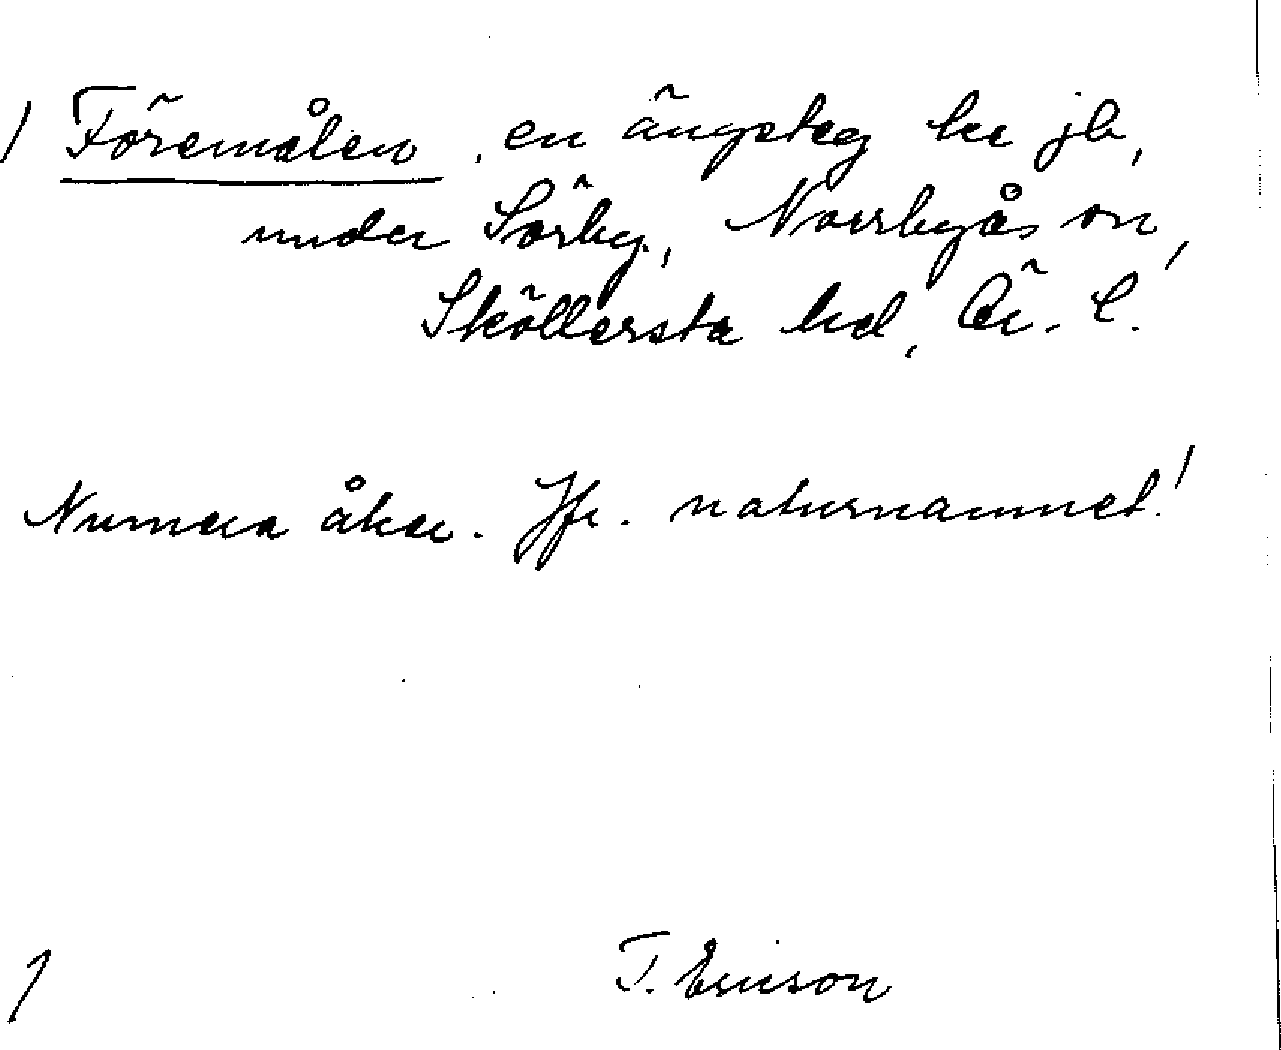 / Föremålen, en ängsteg he jb,
under Sörby, Norrbyås sn,
Sköllersta hd, Ör. l.
Numera åker. Jfr. naturnamnet!
T. Ericson